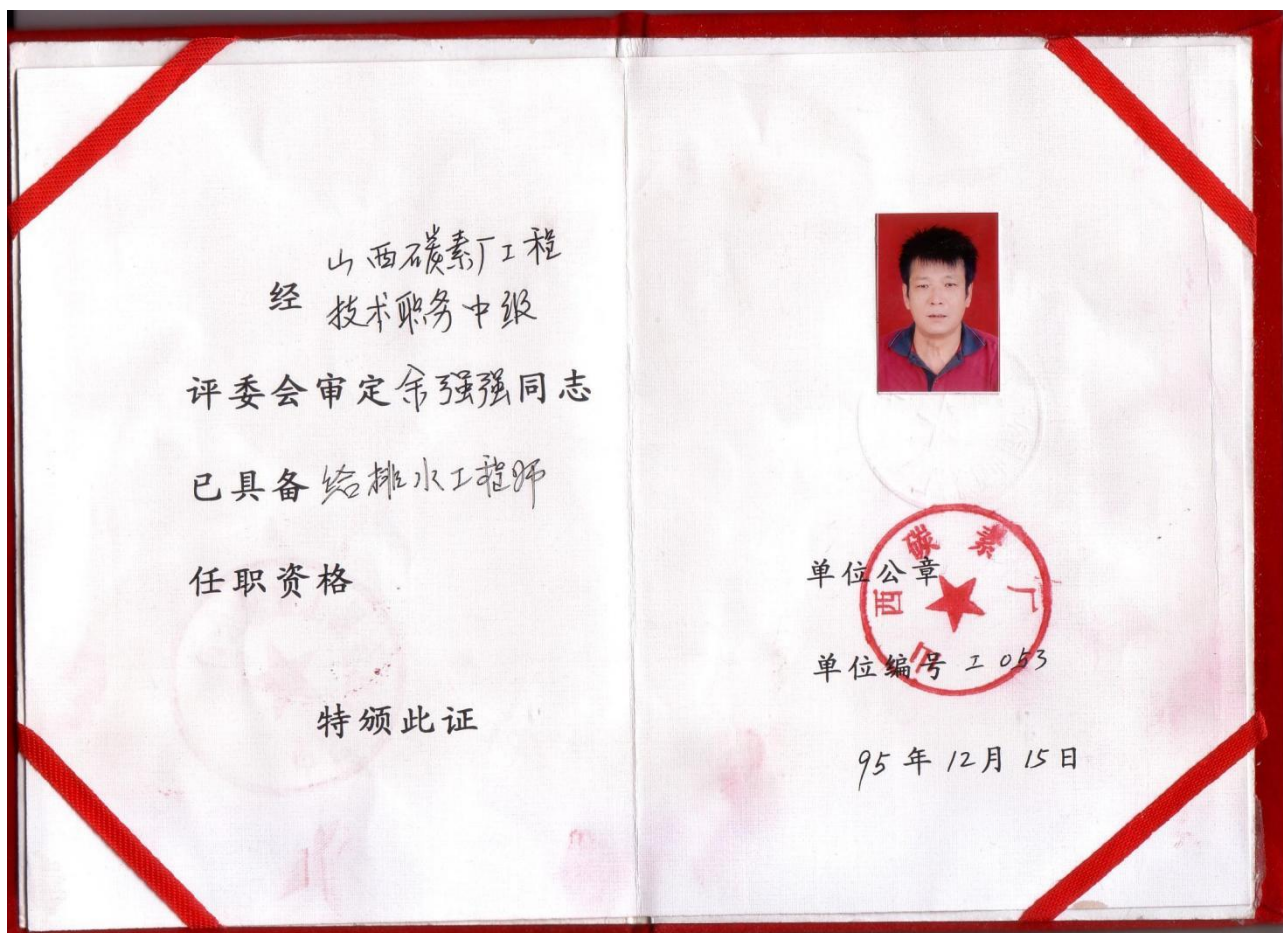 山西碳素厂工程
经 技术职务中级
评委会审定余强强同志
已具备 给排水工程师
任职资格
特颁此证
山西碳素厂
单位公章
单位编号 工053
95年12月15日